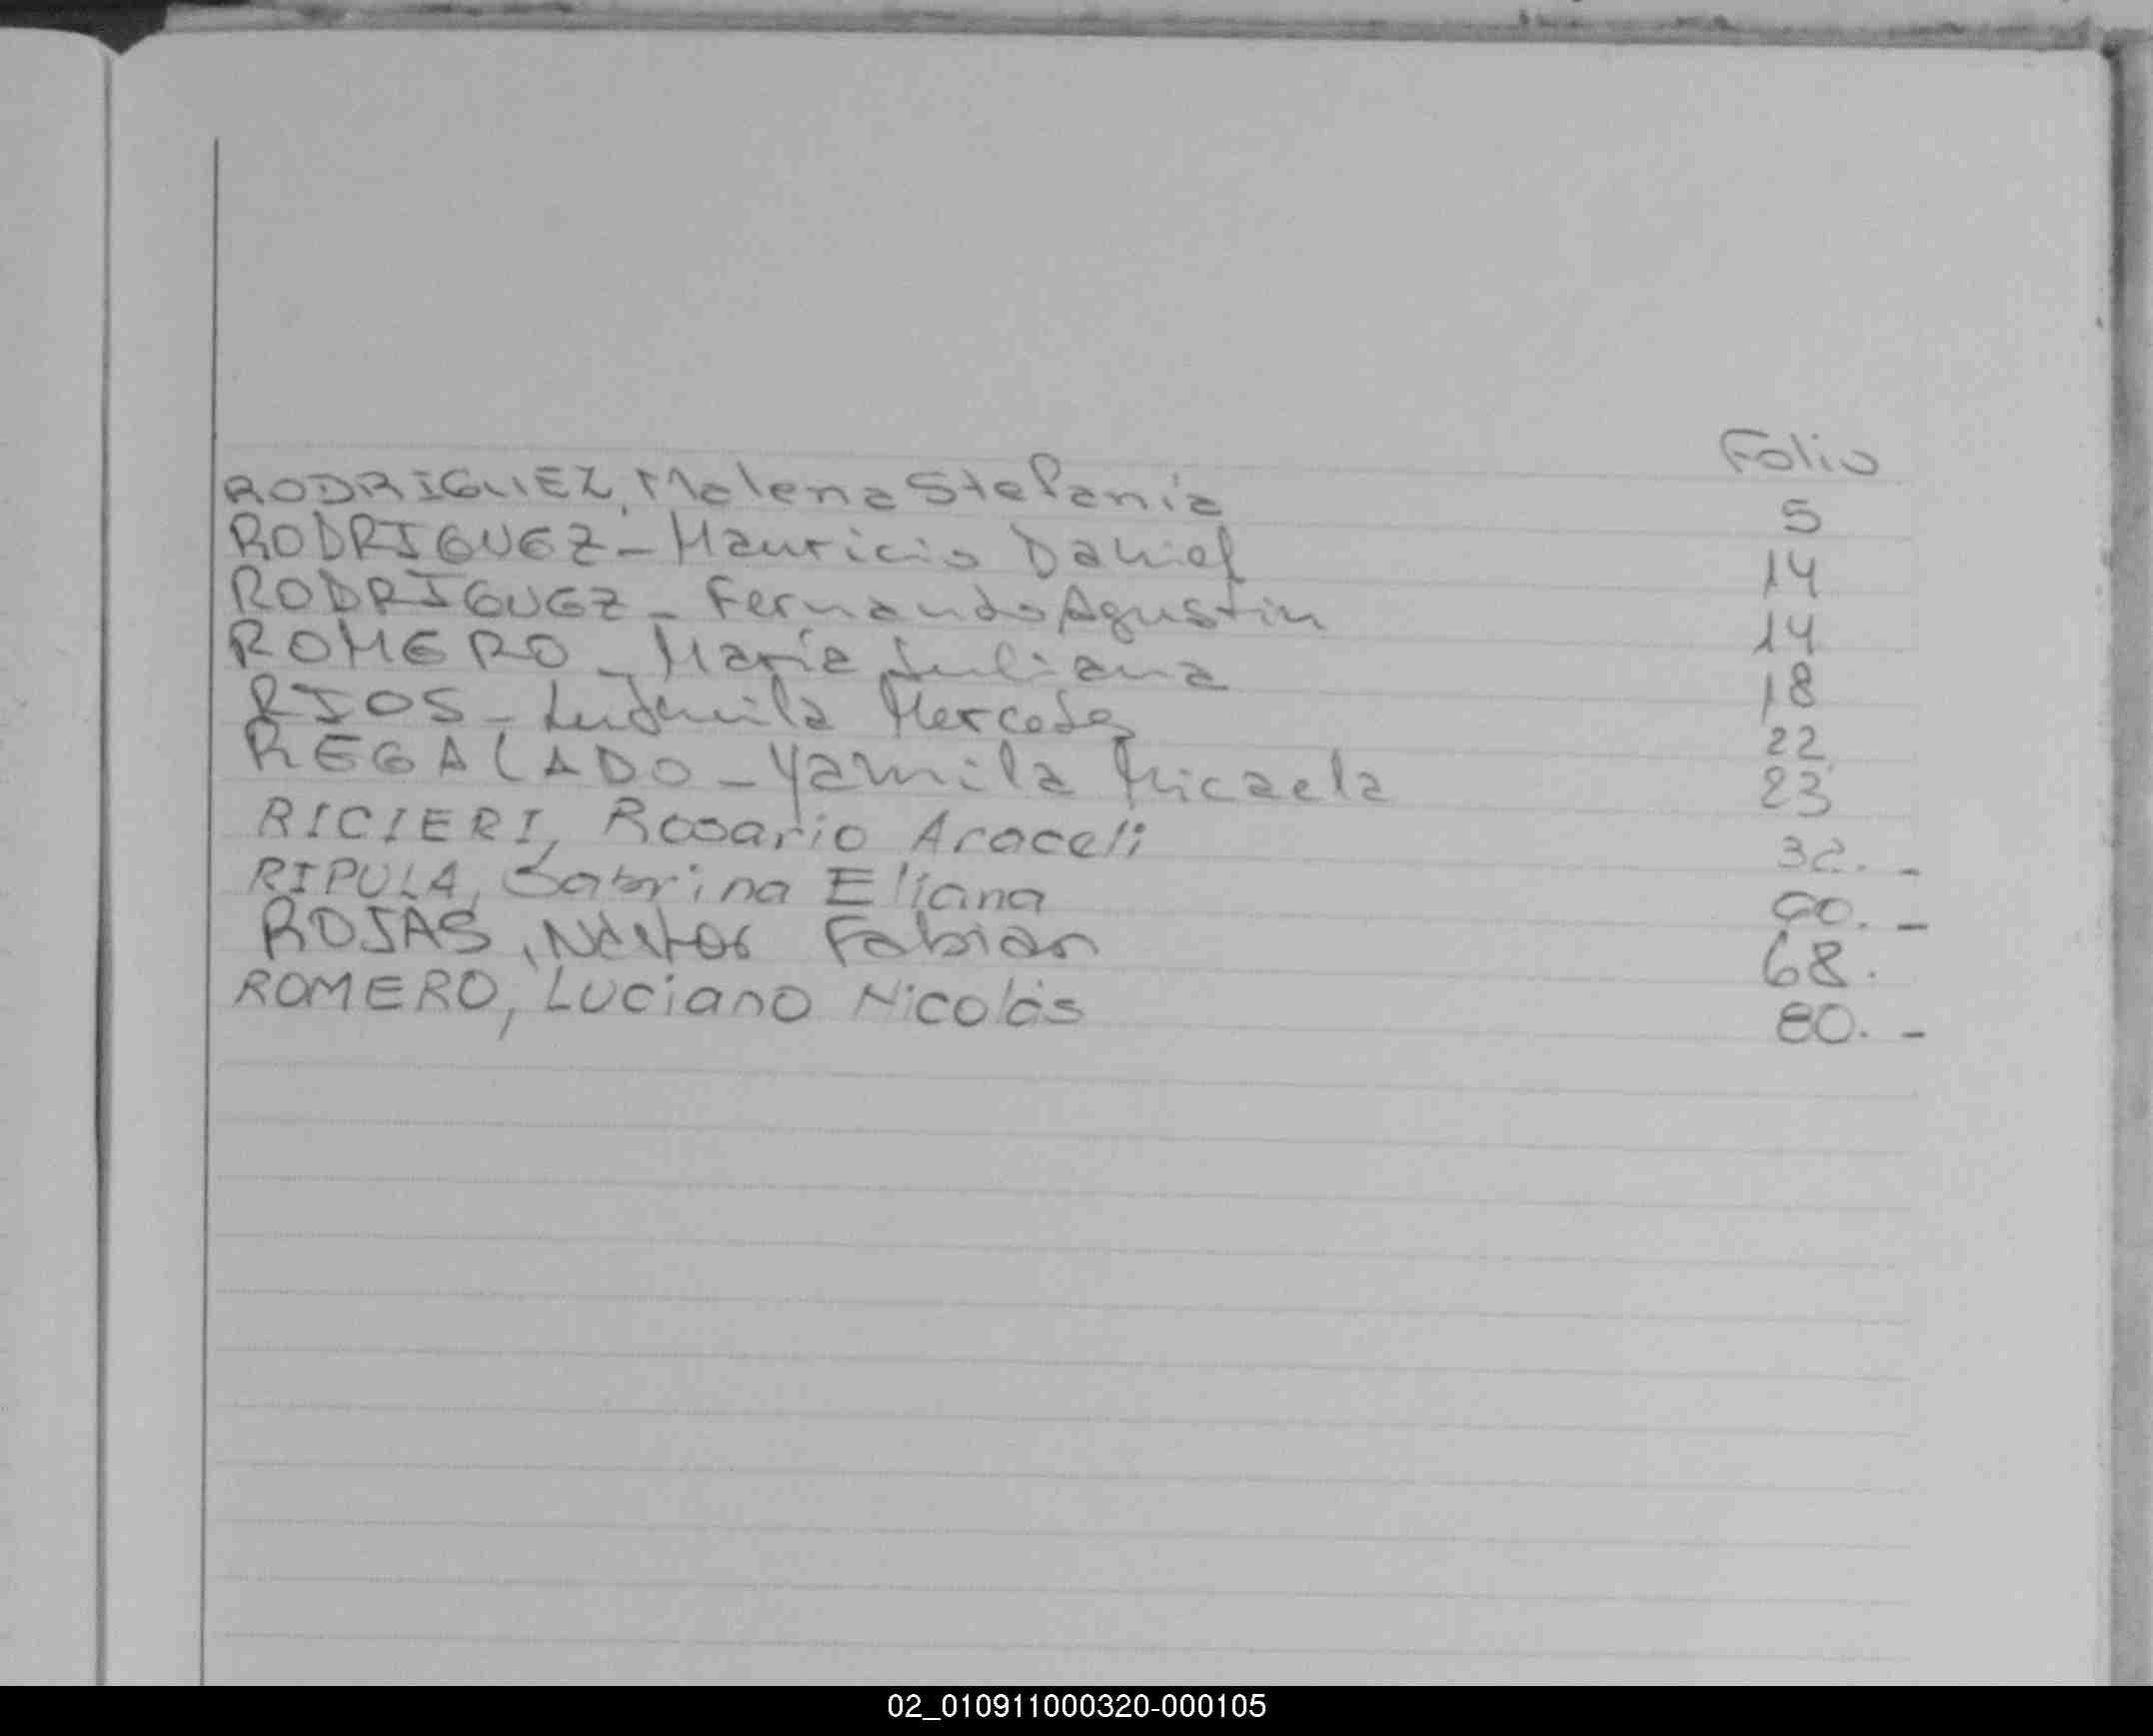 Folio
RODRIGUEZ, Malena Stefanía 5
RODRIGUEZ - Mauricio Daniel 14
RODRIGUEZ - Fernando Agustin 14
ROMERO - María Juliana 18
RIOS - Ludmila Mercedes 22
REGALADO - Yamila Micaela 23
RICIERI, Rosario Araceli 32. -
RIPULA, Sabrina Eliana
ROJAS, Néstor Fabian 68.
ROMERO, Luciano Nicolás 80. -
02_010911000320-000105